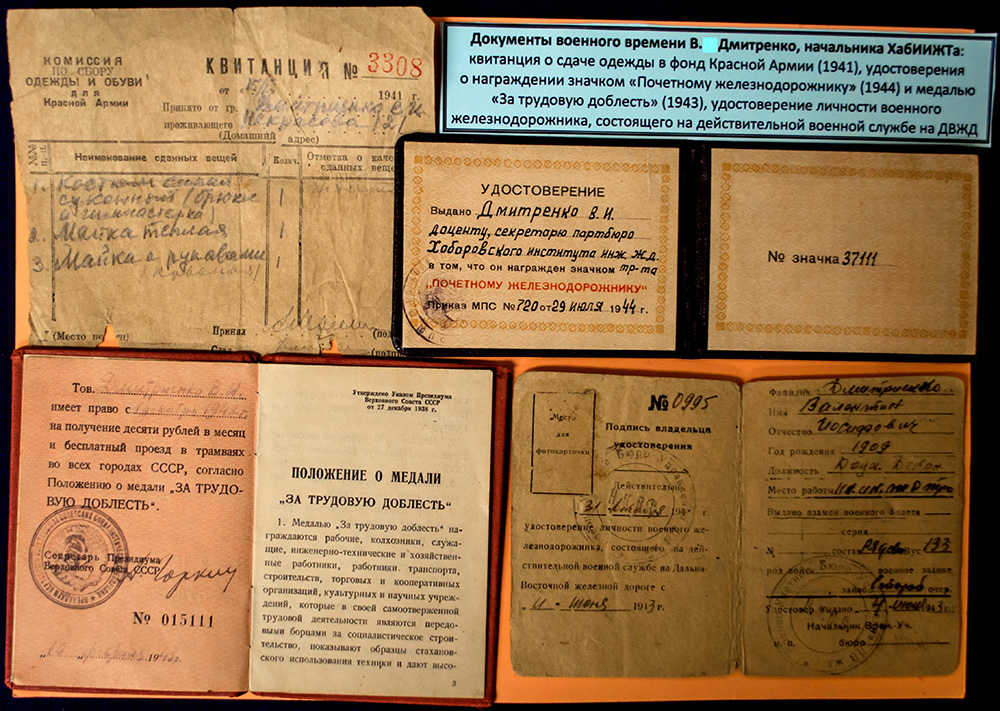 Документы военного времени В. Дмитренко, начальника ХабИИЖТа:
квитанция о сдаче одежды в фонд Красной Армии (1941), удостоверения
о награждении значком «Почетному железнодорожнику» (1944) и медалью
«За трудовую доблесть» (1943), удостоверение личности военного
железнодорожника, состоящего на действительной военной службе на ДВЖД
КОМИССИЯ
ПО СБОРУ
ОДЕЖДЫ И ОБУВИ
для
Красной Армии
КВИТАНЦИЯ № 3308
от 1941 г.
Принято от гр.
проживающего Некрасова
(Домашний адрес)
№№
Наименование сданных вещей
Колич.
Отметка о каче
сданных веще
1. Костюм
суконный (брюки
и гимнастерка) 1
2. Майка теплая 1
3. Майка с рукавами 1
(Место печати)
Принял
УДОСТОВЕРЕНИЕ
Выдано Дмитренко В. И.
доценту, секретарю партбюро
Хабаровского института инж. ж.д.
в том, что он награжден значком тр-та
„ПОЧЕТНОМУ ЖЕЛЕЗНОДОРОЖНИКУ"
Приказ МПС № 720 от 29 июля 1944 г.
№ значка 37111
Тов. Дмитренко В. И.
имеет право с
на получение десяти рублей в месяц
и бесплатный проезд в трамваях
во всех городах СССР, согласно
Положению о медали „ЗА ТРУДО-
ВУЮ ДОБЛЕСТЬ".
Секретарь Президиума
Верховного Совета СССР
№ 015111
Утверждено Указом Президиума
Верховного Совета СССР
от 27 декабря 1938 г.
ПОЛОЖЕНИЕ О МЕДАЛИ
„ЗА ТРУДОВУЮ ДОБЛЕСТЬ"
1. Медалью „За трудовую доблесть" на-
граждаются рабочие, колхозники, служа-
щие, инженерно-технические и хозяйствен-
ные работники, работники транспорта,
строительств, торговых и кооперативных
организаций, культурных и научных учреж-
дений, которые в своей самоотверженной
трудовой деятельности являются передо-
выми борцами за социалистическое строи-
тельство, показывают образцы стаханов-
ского использования техники и дают высо-
3
Место
для
фотокарточки
№ 0995
Подпись владельца
удостоверения
Действительно
31 194
удостоверение личности военного же-
лезнодорожника, состоящего на дей-
ствительной военной службе на Дальне-
Восточной железной дороге с
июня 1943 г.
Фамилия Дмитренко
Имя Валентин
Отчество Иосифович
Год рождения 1909
Должность
Место работы
Выдано взамен военного билета
серия
№ состав рядов ВУС 133
род войск военное звание
Удостовер. выдано 1943 г.
Начальник Воен.-Уч.
м. п. бюро